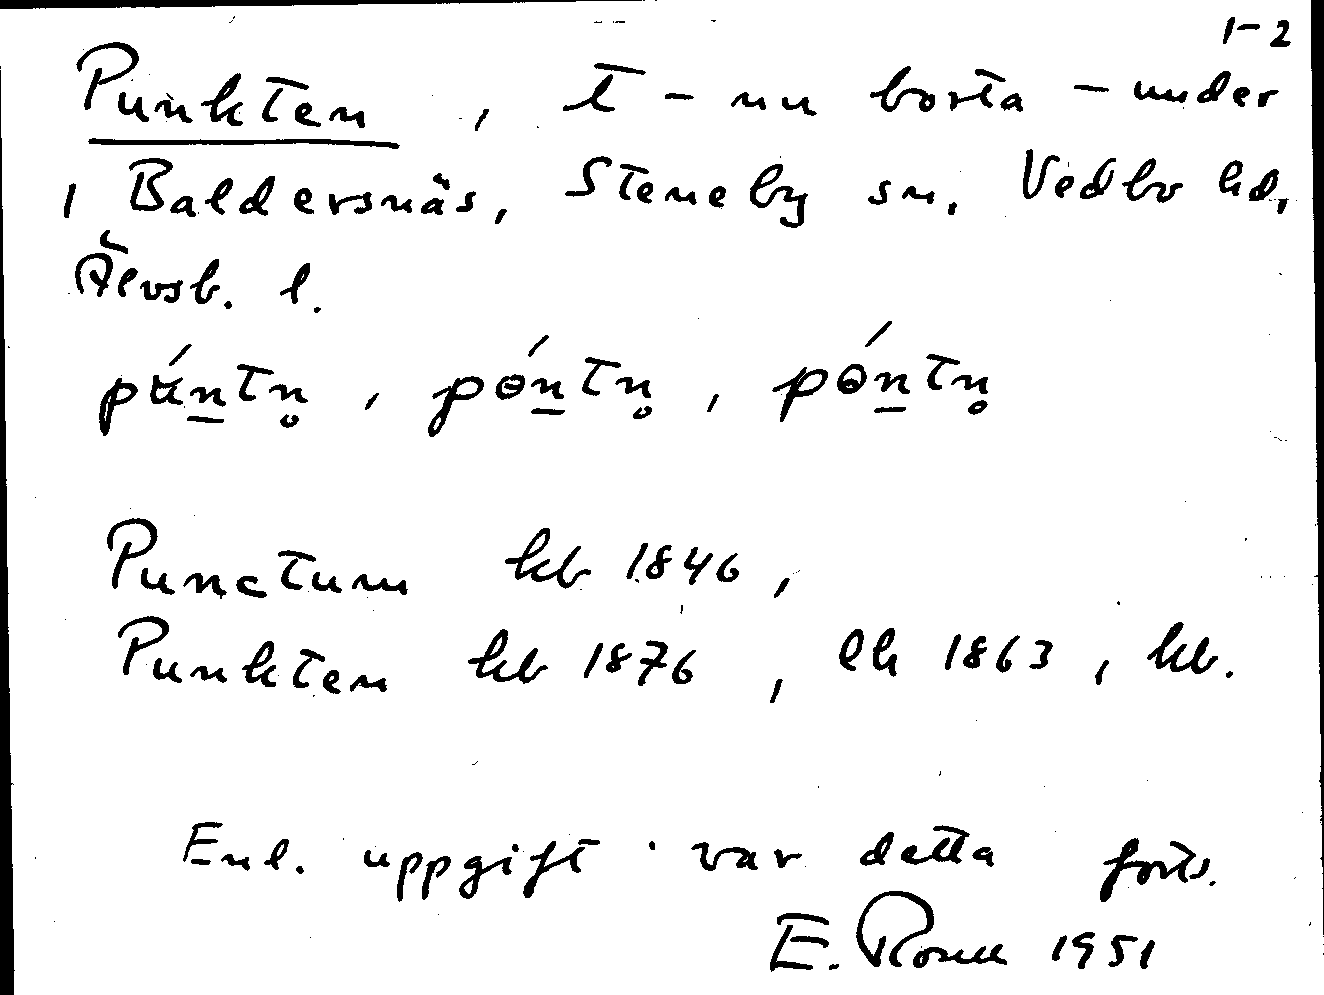 1-2
Punkten, t - nu borta - under
1 Baldersnäs, Steneby sn, Vedbo hd,
Älvsb. l.
pún̲tn̥, pɵ́n̲tn̥, pɵ́n̲tn̥
Punctum kb 1846,
Punkten kb 1876, lh 1863, kb.
Enl. uppgift var detta forts.
E. 1951